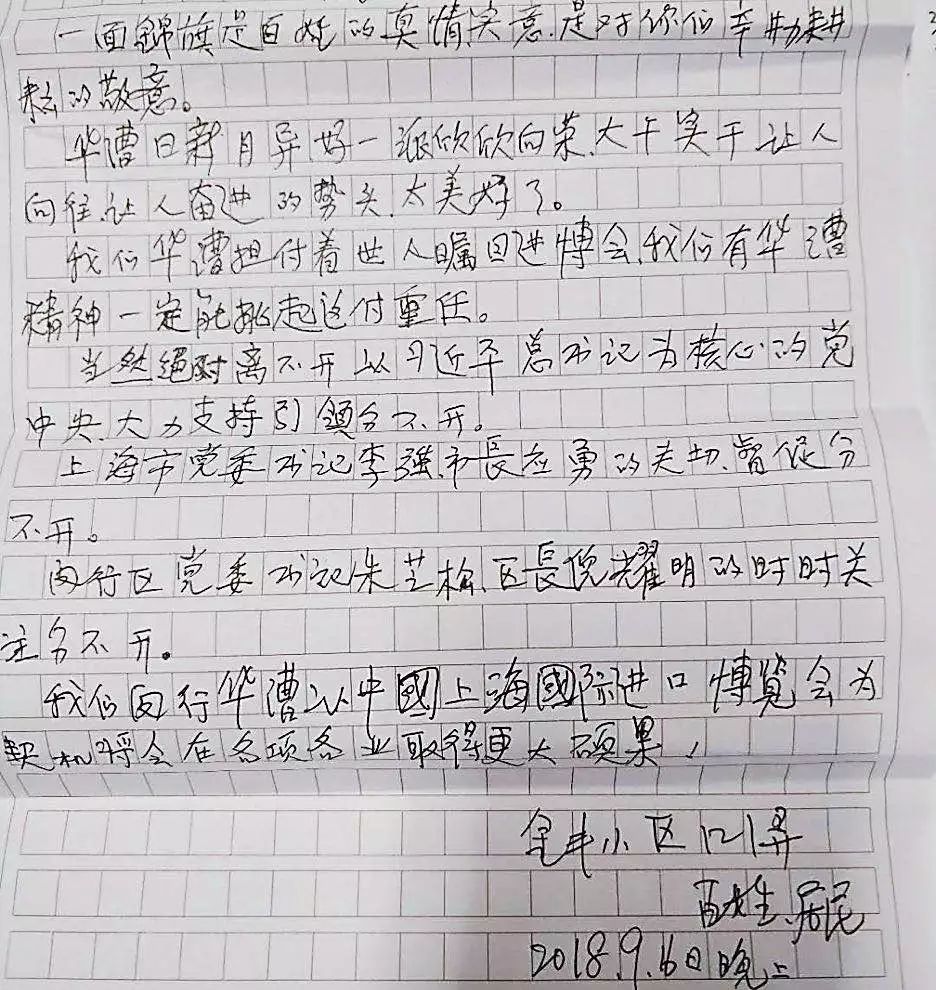 一面錦旗是百姓的真情实意.是对你们辛勤耕
耘的敬意。
华漕日新月异好一派欣欣向荣.大干实干让人
向往.让人奋进的势头.太美好了。
我们华漕担付着世人瞩目进博会.我们有华漕
精神一定能挑起这付重任。
当然絕对离不开以习近平总书记为核心的党
中央.大力支持引领分不开。
上海市党委书记李强.市長应勇的关切.督促分
不开。
闵行区党委书记朱芝松.区長倪耀明的时时关
注分不开。
我们闵行华漕以中國上海國际进口博览会为
契机将会在各项各业取得更大硕果，
金丰小区121弄
百姓.居民
2018.9.6日晚上